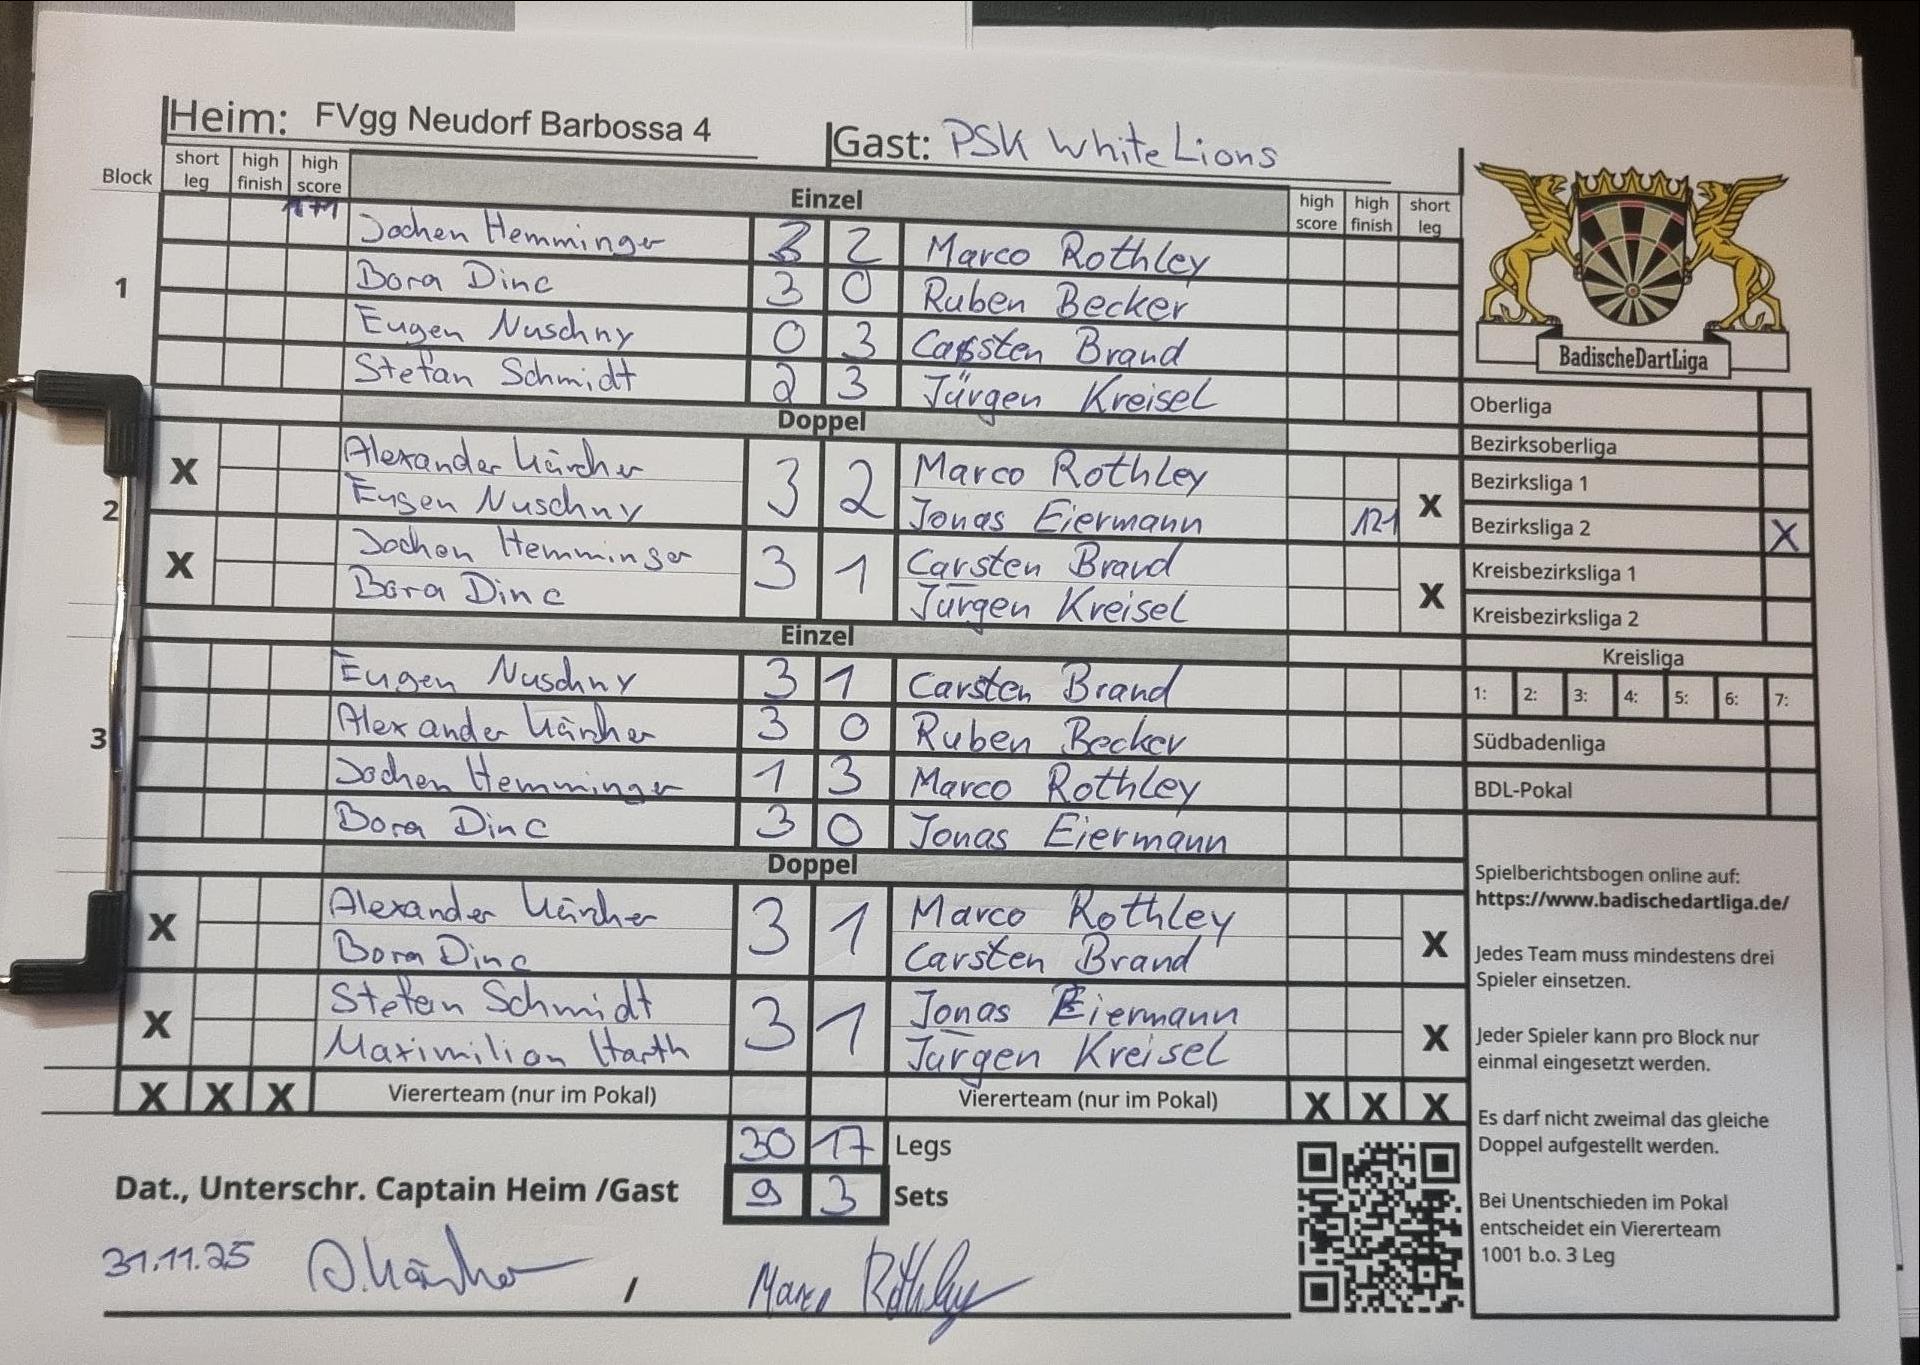 Heim: FVgg Neudorf Barbossa 4
Gast: PSK White Lions
Block short leg high finish high score Einzel high score high finish short leg
171
Jochen Hemminger 3 2 Marco Rothley
1 Bora Dinc 3 0 Ruben Becker
Eugen Nuschny 0 3 Carsten Brand
Stefan Schmidt 2 3 Jürgen Kreisel
Doppel
X Alexander Kärcher 3 2 Marco Rothley X
2 Eugen Nuschny Jonas Eiermann 121
X Jochen Hemminger 3 1 Carsten Brand X
Bora Dinc Jürgen Kreisel
Einzel
Eugen Nuschny 3 1 Carsten Brand
3 Alexander Kärcher 3 0 Ruben Becker
Jochen Hemminger 1 3 Marco Rothley
Bora Dinc 3 0 Jonas Eiermann
Doppel
X Alexander Kärcher 3 1 Marco Rothley X
Bora Dinc Carsten Brand
X Stefan Schmidt 3 1 Jonas Eiermann X
Maximilian Harth Jürgen Kreisel
X X X Viererteam (nur im Pokal) Viererteam (nur im Pokal) X X X
30 17 Legs
Dat., Unterschr. Captain Heim /Gast 9 3 Sets
31.11.25 A. Kärcher / Marco Rothley
BadischeDartLiga
Oberliga
Bezirksoberliga
Bezirksliga 1
Bezirksliga 2 X
Kreisbezirksliga 1
Kreisbezirksliga 2
Kreisliga
1: 2: 3: 4: 5: 6: 7:
Südbadenliga
BDL-Pokal
Spielberichtsbogen online auf:
https://www.badischedartliga.de/
Jedes Team muss mindestens drei
Spieler einsetzen.
Jeder Spieler kann pro Block nur
einmal eingesetzt werden.
Es darf nicht zweimal das gleiche
Doppel aufgestellt werden.
Bei Unentschieden im Pokal
entscheidet ein Viererteam
1001 b.o. 3 Leg